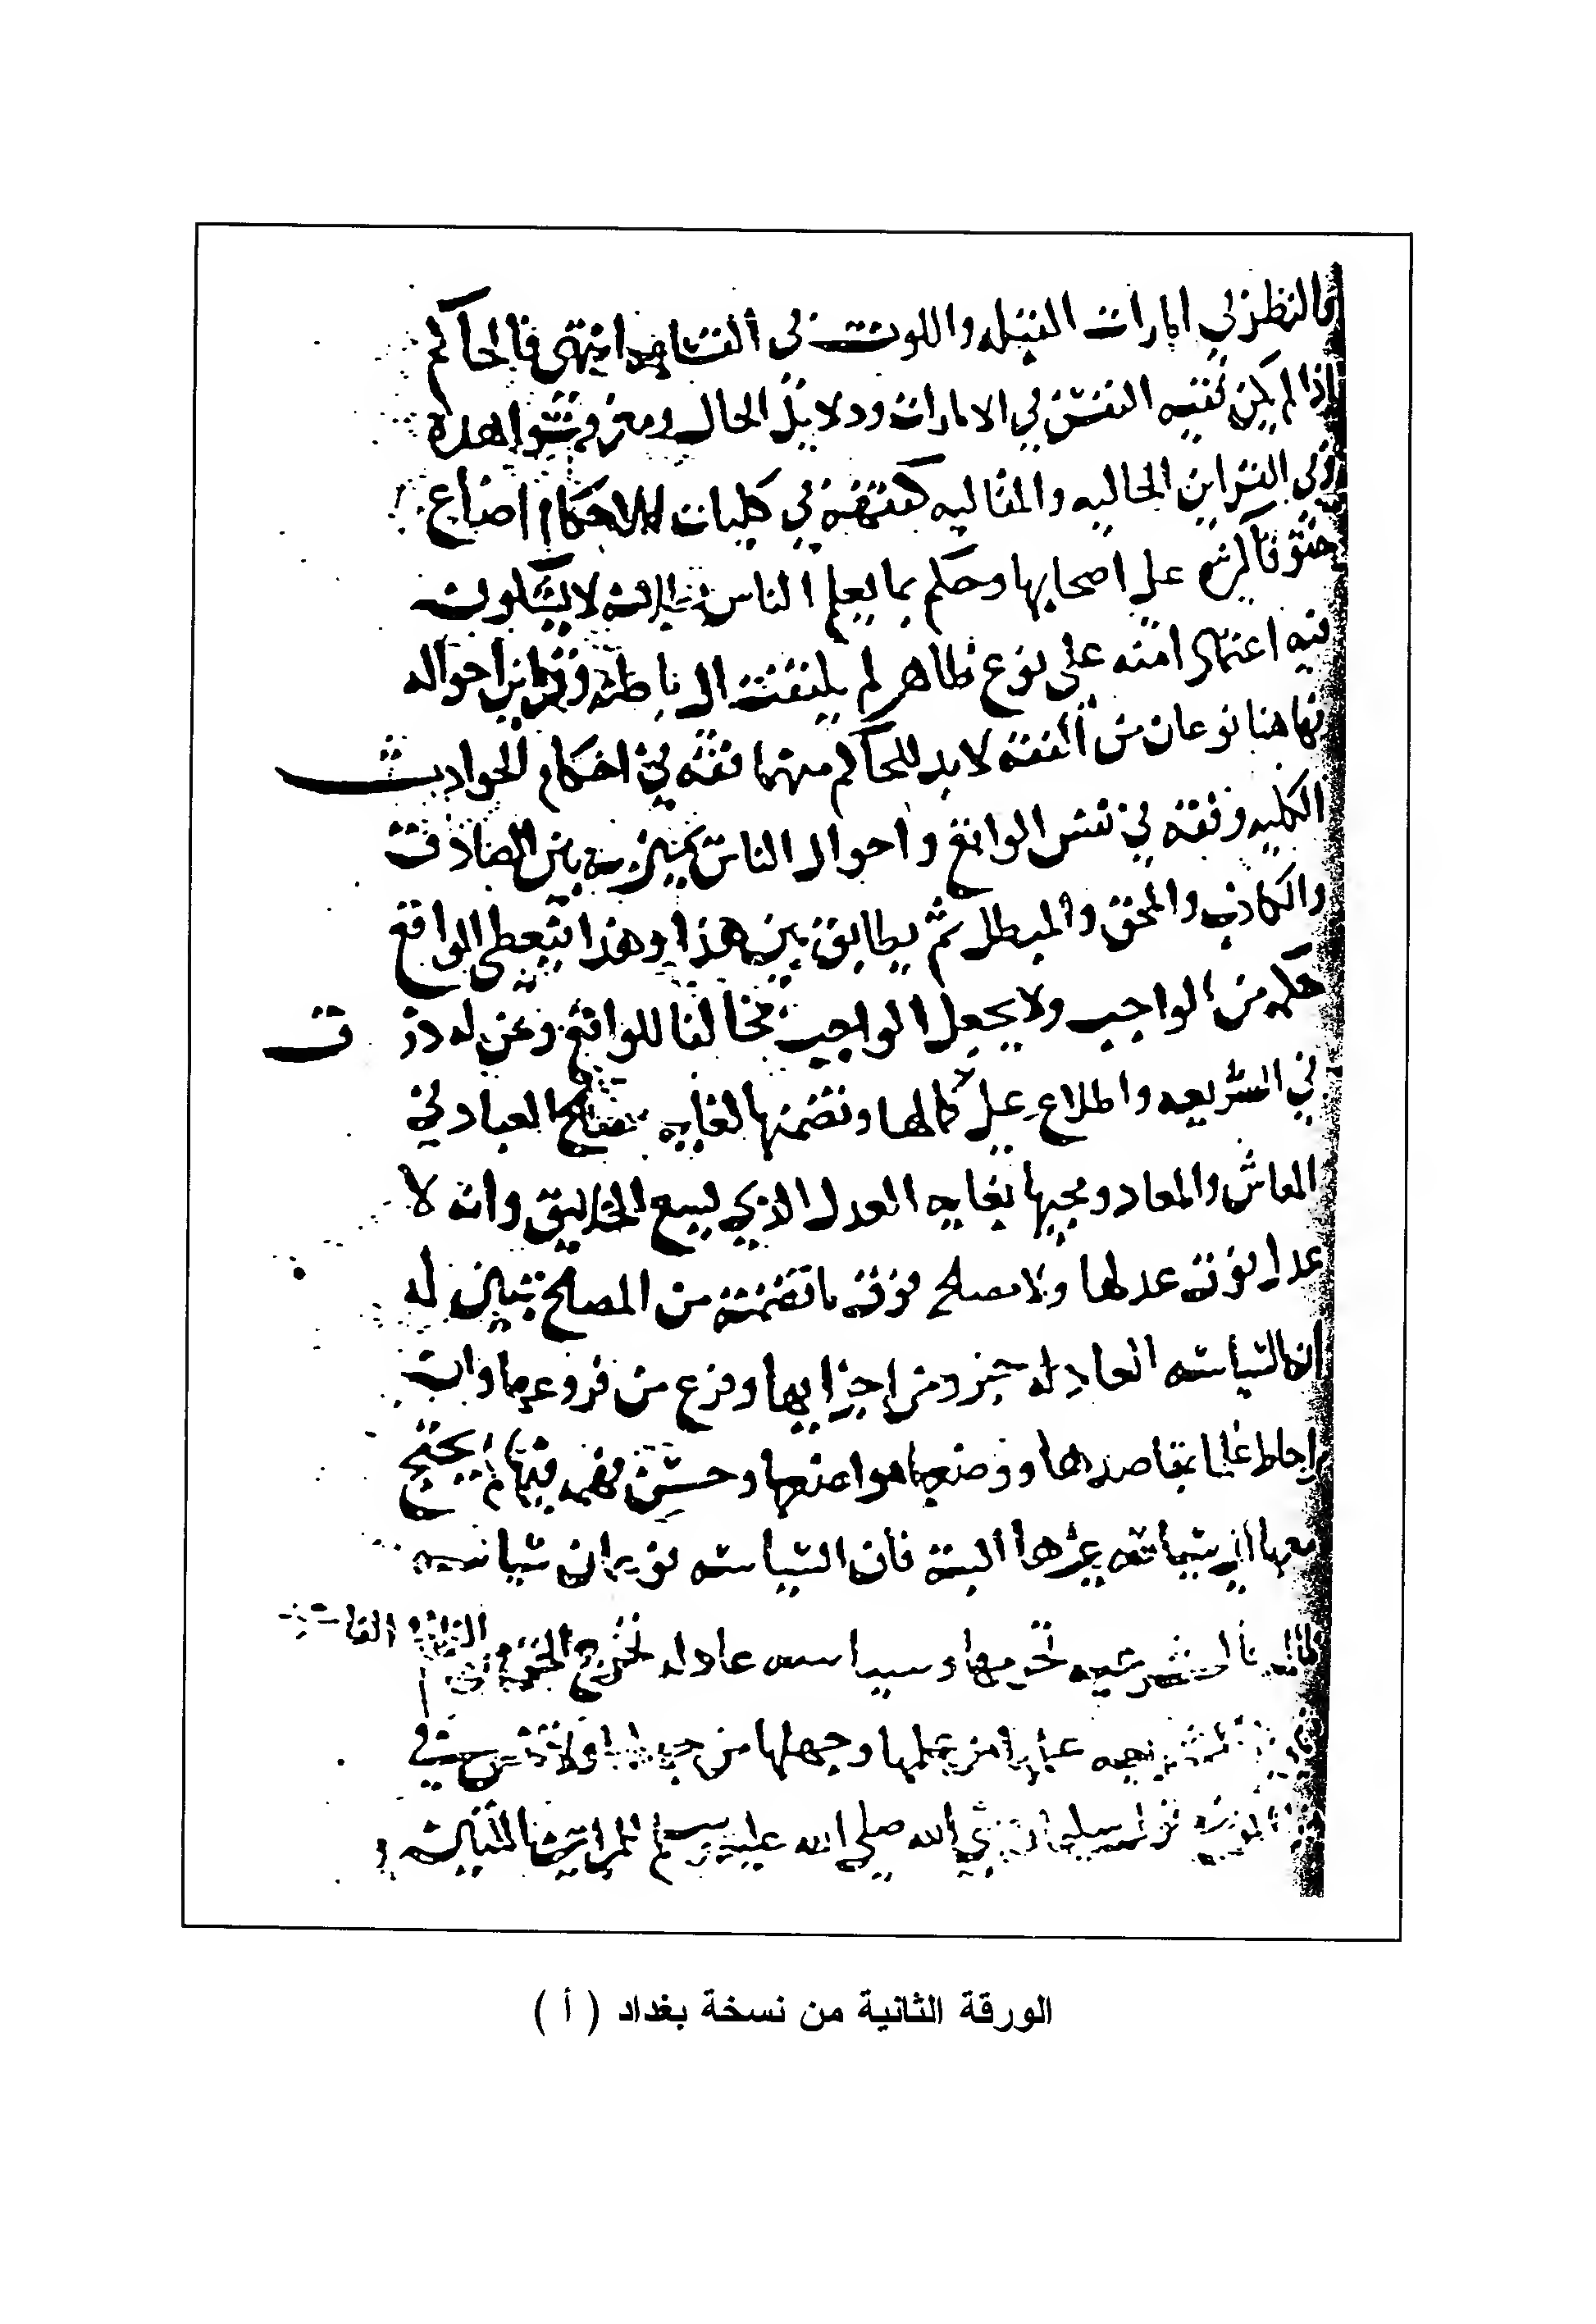 والنظر في امارات القتل واللوث في القسامه انتهى فالحاكم
اذا لم يكن فقيه النفس في الامارات ودلايل الحال ومعرفه شواهده
وفي القراين الحاليه والمقاليه كفقهه في كليات الاحكام اضاع
حقوقا كثيره على اصحابها وحكم بما يعلم الناس بطلانه لا يشكون
فيه اعتمادا منه على نوع ظاهر لم يلتفت الى باطنه وقراين احواله
فهاهنا نوعان من الفقه لا بد للحاكم منهما فقه في احكام الحوادث
الكليه وفقه في نفس الواقع واحوال الناس يميز به بين الصادق
والكاذب والمحق والمبطل ثم يطابق بين هذا وهذا فيعطي الواقع
حكمه من الواجب ولا يجعل الواجب مخالفا للواقع ومن له ذوق
في الشريعه واطلاع على كمالها وتضمنها لغايه مصالح العباد في
المعاش والمعاد ومجيها بغايه العدل الذي يسع الخلايق وانه لا
عدل فوق عدلها ولا مصلحه فوق ما تضمنته من المصالح تبين له
ان السياسه العادله جزو من اجزايها وفرع من فروعها وان
احاط علما بمقاصدها ووضعها مواضعها وحسن فهمه فيها لم يحتج
معها الى سياسه غيرها البته فان السياسه نوعان سياسه
ظالمه فالشريعه تحرمها وسياسه عادله تخرج الحق من الظالم الفاجر
الشريعه علمها من علمها وجهلها من جهلها ولا تنس في
سليمان نبي الله صلى الله عليه وسلم للمراتين اللتين
الورقة الثانية من نسخة بغداد ( أ )